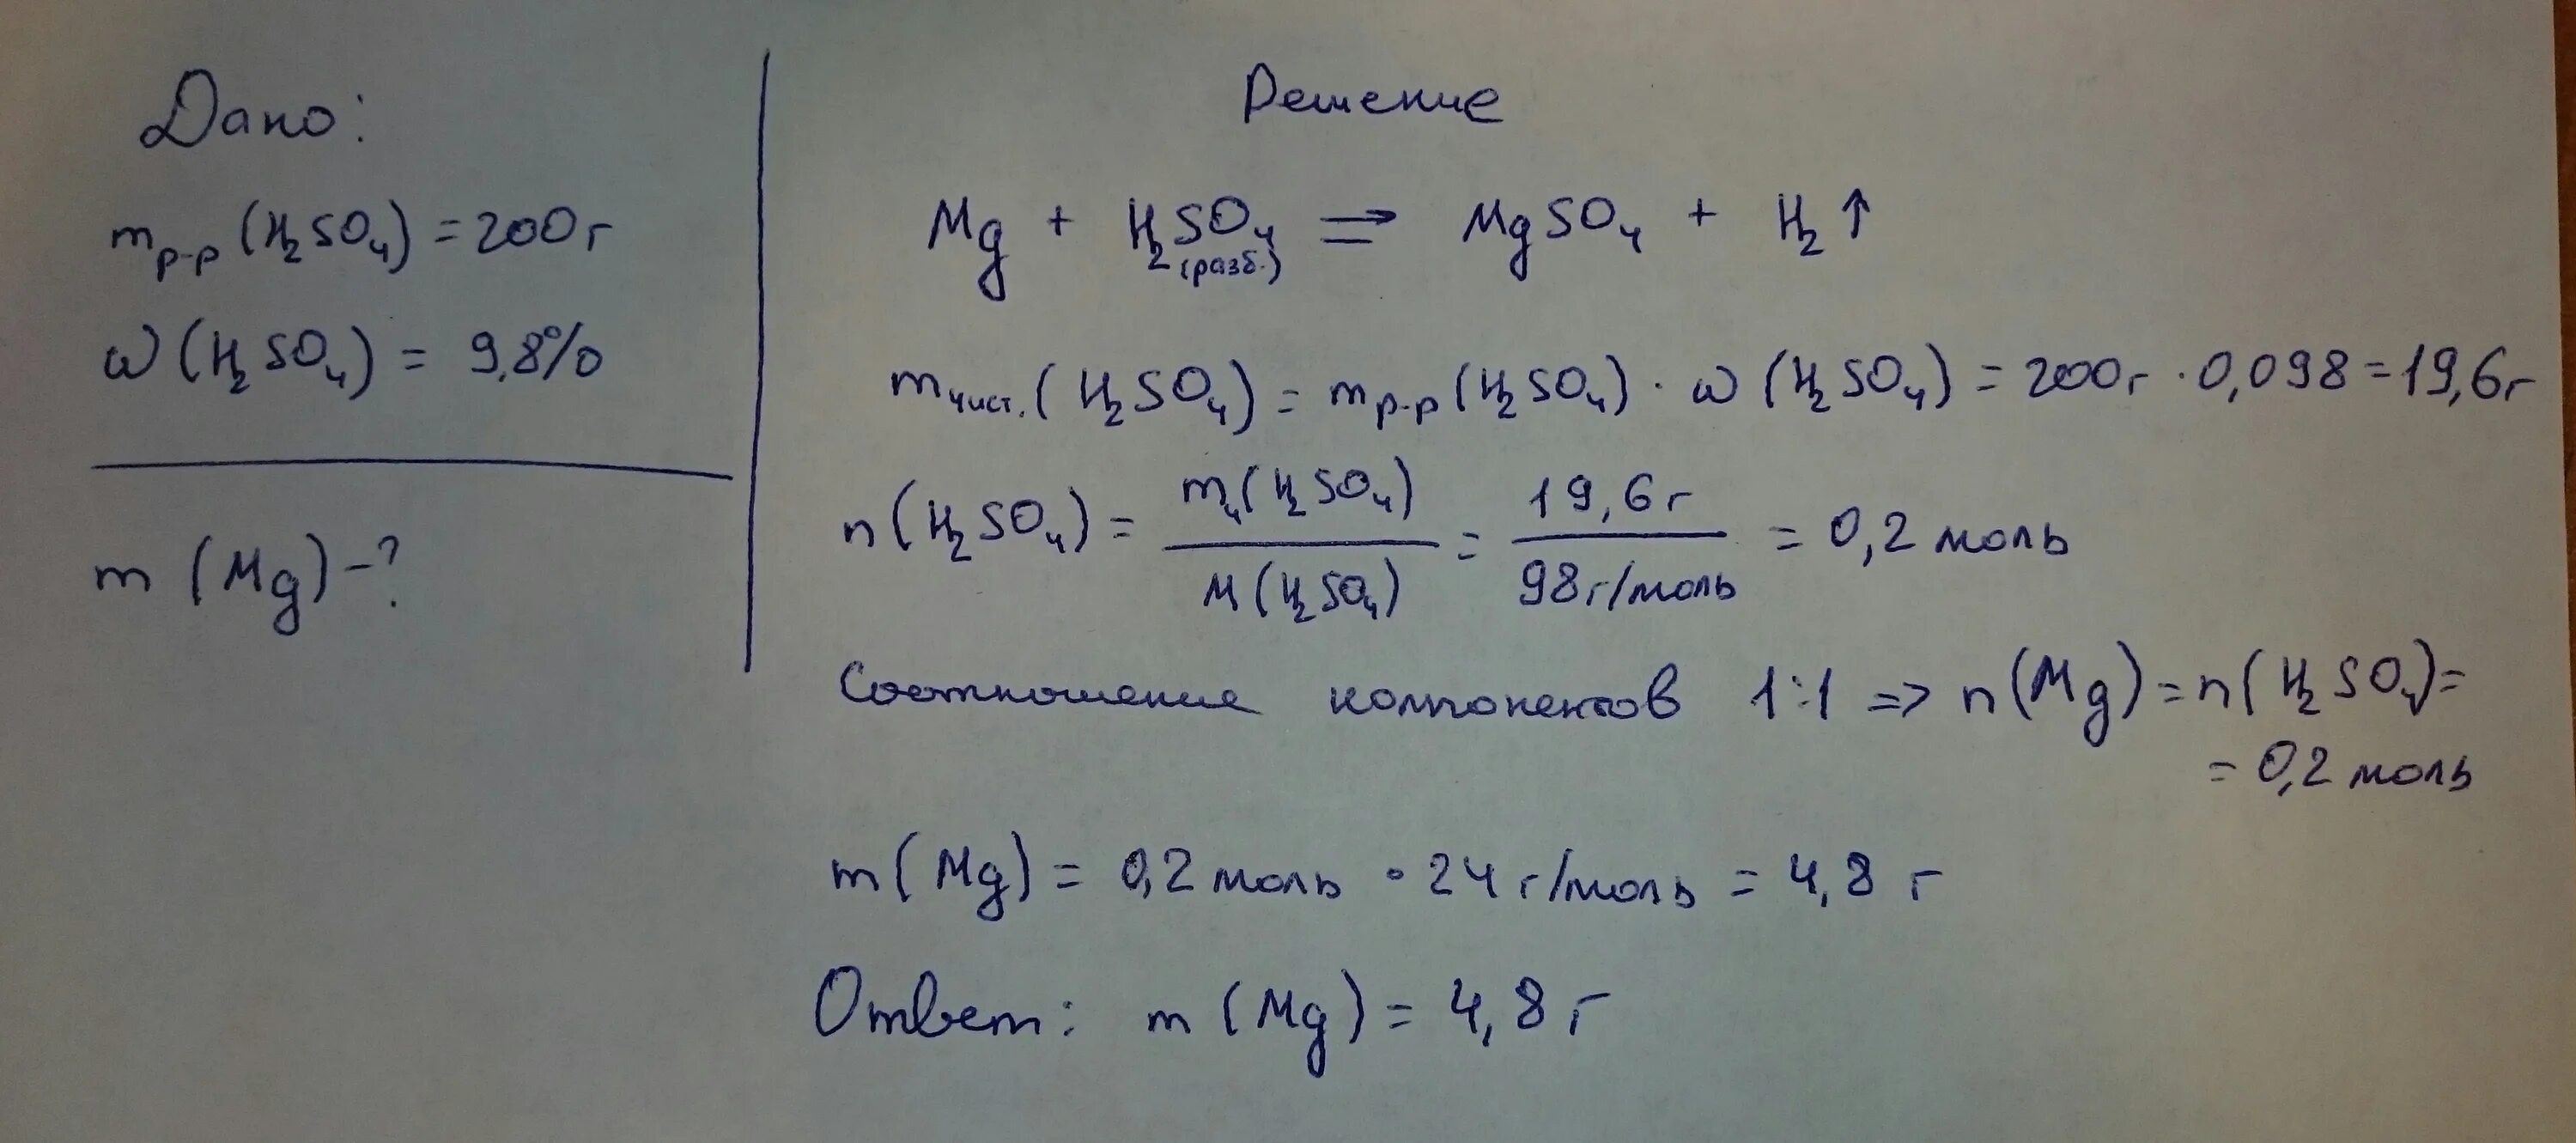 Дано:
m р-р (H₂SO₄) = 200 г
ω (H₂SO₄) = 9,8%
m (Mg) - ?
Решение
Mg + H₂SO₄ (разб.) => MgSO₄ + H₂↑
m чист. (H₂SO₄) = m р-р (H₂SO₄) · ω (H₂SO₄) = 200 г · 0,098 = 19,6 г
n (H₂SO₄) = mч (H₂SO₄) / M (H₂SO₄) = 19,6 г / 98 г/моль = 0,2 моль
Соотношение компонентов 1:1 => n (Mg) = n (H₂SO₄) =
= 0,2 моль
m (Mg) = 0,2 моль · 24 г/моль = 4,8 г
Ответ: m (Mg) = 4,8 г